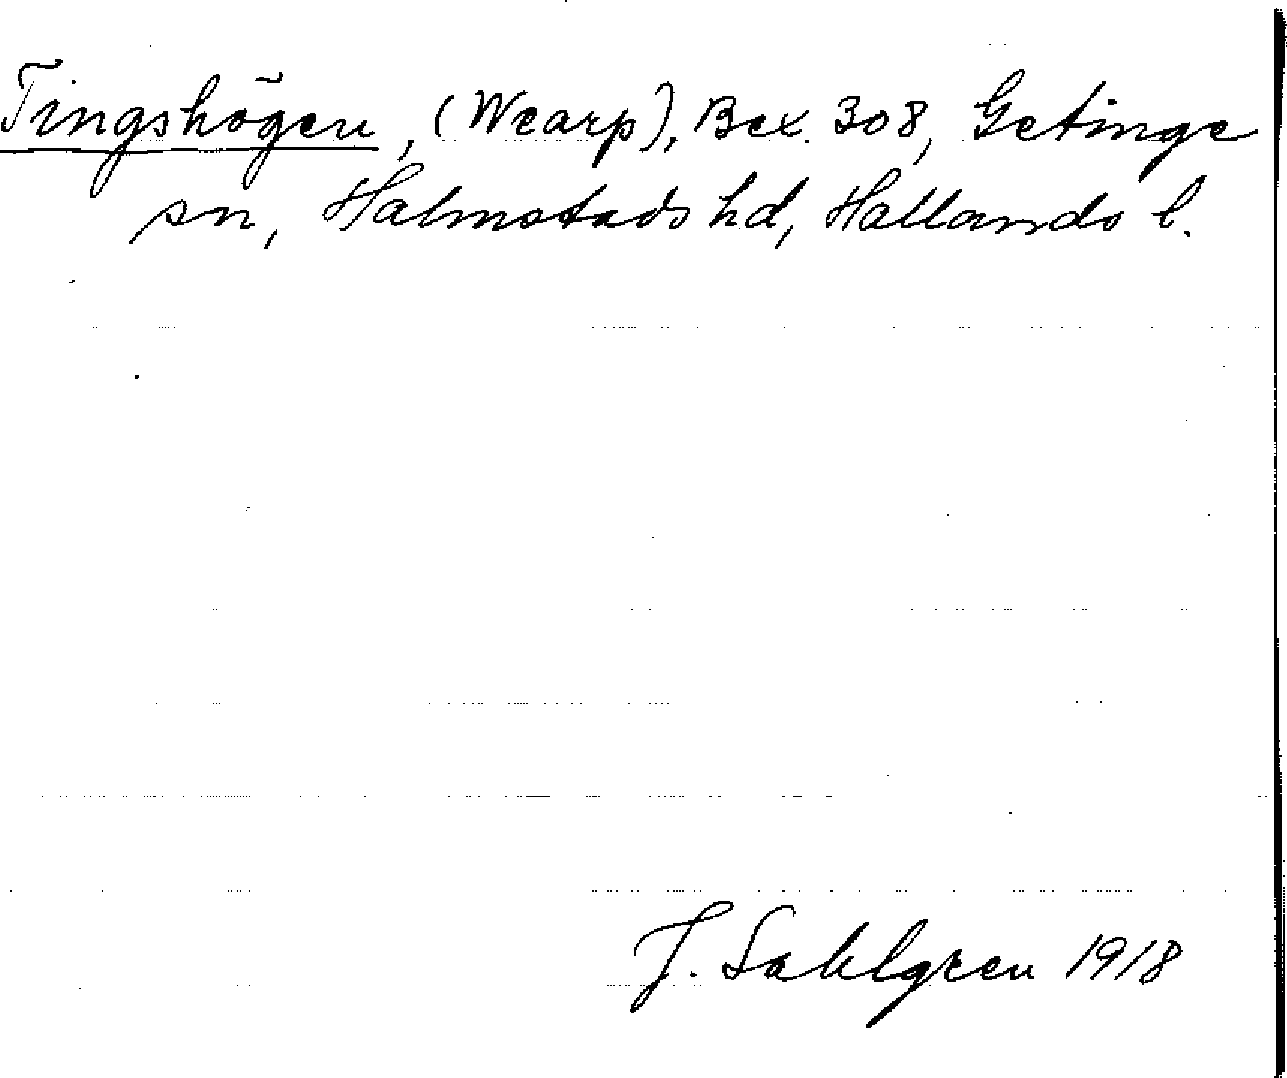 Tingshögen, (Wearp), Bex. 308, Getinge
sn, Halmstads hd, Hallands l.
J. Sahlgren 1918